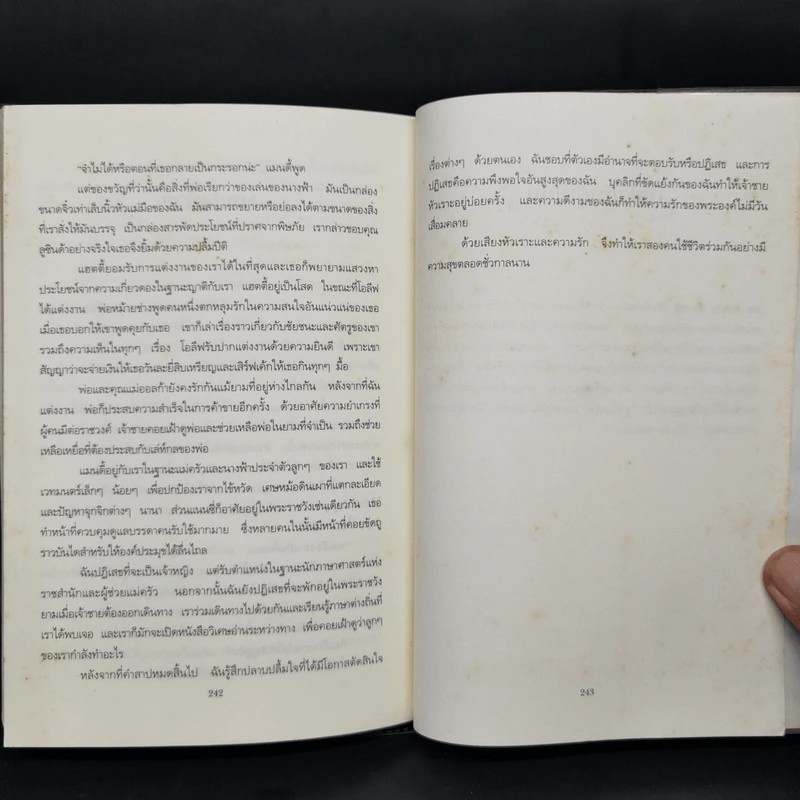 "จำไม่ได้หรือตอนที่เธอกลายเป็นกระรอกน่ะ" แมนดี้พูด
แต่ของขวัญที่ว่านั้นคือสิ่งที่พ่อเรียกว่าของเล่นของนางฟ้า มันเป็นกล่อง
ขนาดจิ๋วเท่าเล็บนิ้วหัวแม่มือของฉัน มันสามารถขยายหรือย่อลงได้ตามขนาดของสิ่ง
ที่เราสั่งให้มันบรรจุ เป็นกล่องสารพัดประโยชน์ที่ปราศจากพิษภัย เรากล่าวขอบคุณ
ลูซินด้าอย่างจริงใจเธอจึงยิ้มด้วยความปลื้มปีติ
แฮตตี้ยอมรับการแต่งงานของเราได้ในที่สุดและเธอก็พยายามแสวงหา
ประโยชน์จากความเกี่ยวดองในฐานะญาติกับเรา แฮตตี้อยู่เป็นโสด ในขณะที่โอลีฟ
ได้แต่งงาน พ่อหม้ายช่างพูดคนหนึ่งตกหลุมรักในความสนใจอันแน่วแน่ของเธอ
เมื่อเธอบอกให้เขาพูดคุยกับเธอ เขาก็เล่าเรื่องราวเกี่ยวกับชัยชนะและศัตรูของเขา
รวมถึงความเห็นในทุกๆ เรื่อง โอลีฟรับปากแต่งงานด้วยความยินดี เพราะเขา
สัญญาว่าจะจ่ายเงินให้เธอวันละยี่สิบเหรียญและเสิร์ฟเค้กให้เธอกินทุกๆ มื้อ
พ่อและคุณแม่ออลก้ายังคงรักกันแม้ยามที่อยู่ห่างไกลกัน หลังจากที่ฉัน
แต่งงาน พ่อก็ประสบความสำเร็จในการค้าขายอีกครั้ง ด้วยอาศัยความยำเกรงที่
ผู้คนมีต่อราชวงศ์ เจ้าชายคอยเฝ้าดูพ่อและช่วยเหลือพ่อในยามที่จำเป็น รวมถึงช่วย
เหลือเหยื่อที่ต้องประสบกับเล่ห์กลของพ่อ
แมนดี้อยู่กับเราในฐานะแม่ครัวและนางฟ้าประจำตัวลูกๆ ของเรา และใช้
เวทมนตร์เล็กๆ น้อยๆ เพื่อปกป้องเราจากไข้หวัด เศษหม้อดินเผาที่แตกละเอียด
และปัญหาจุกจิกต่างๆ นานา ส่วนแนนซี่ก็อาศัยอยู่ในพระราชวังเช่นเดียวกัน เธอ
ทำหน้าที่ควบคุมดูแลบรรดาคนรับใช้มากมาย ซึ่งหลายคนในนั้นมีหน้าที่คอยขัดถู
ราวบันไดสำหรับให้องค์ประมุขได้ลื่นไถล
ฉันปฏิเสธที่จะเป็นเจ้าหญิง แต่รับตำแหน่งในฐานะนักภาษาศาสตร์แห่ง
ราชสำนักและผู้ช่วยแม่ครัว นอกจากนั้นฉันยังปฏิเสธที่จะพักอยู่ในพระราชวัง
ยามเมื่อเจ้าชายต้องออกเดินทาง เราร่วมเดินทางไปด้วยกันและเรียนรู้ภาษาต่างถิ่นที่
เราได้พบเจอ และเราก็มักจะเปิดหนังสือวิเศษอ่านระหว่างทาง เพื่อคอยเฝ้าดูว่าลูกๆ
ของเรากำลังทำอะไร
หลังจากที่คำสาปหมดสิ้นไป ฉันรู้สึกปลาบปลื้มใจที่ได้มีโอกาสตัดสินใจ
242
เรื่องต่างๆ ด้วยตนเอง ฉันชอบที่ตัวเองมีอำนาจที่จะตอบรับหรือปฏิเสธ และการ
ปฏิเสธคือความพึงพอใจอันสูงสุดของฉัน บุคลิกที่ขัดแย้งกันของฉันทำให้เจ้าชาย
หัวเราะอยู่บ่อยครั้ง และความดีงามของฉันก็ทำให้ความรักของพระองค์ไม่มีวัน
เสื่อมคลาย
ด้วยเสียงหัวเราะและความรัก จึงทำให้เราสองคนใช้ชีวิตร่วมกันอย่างมี
ความสุขตลอดชั่วกาลนาน
243